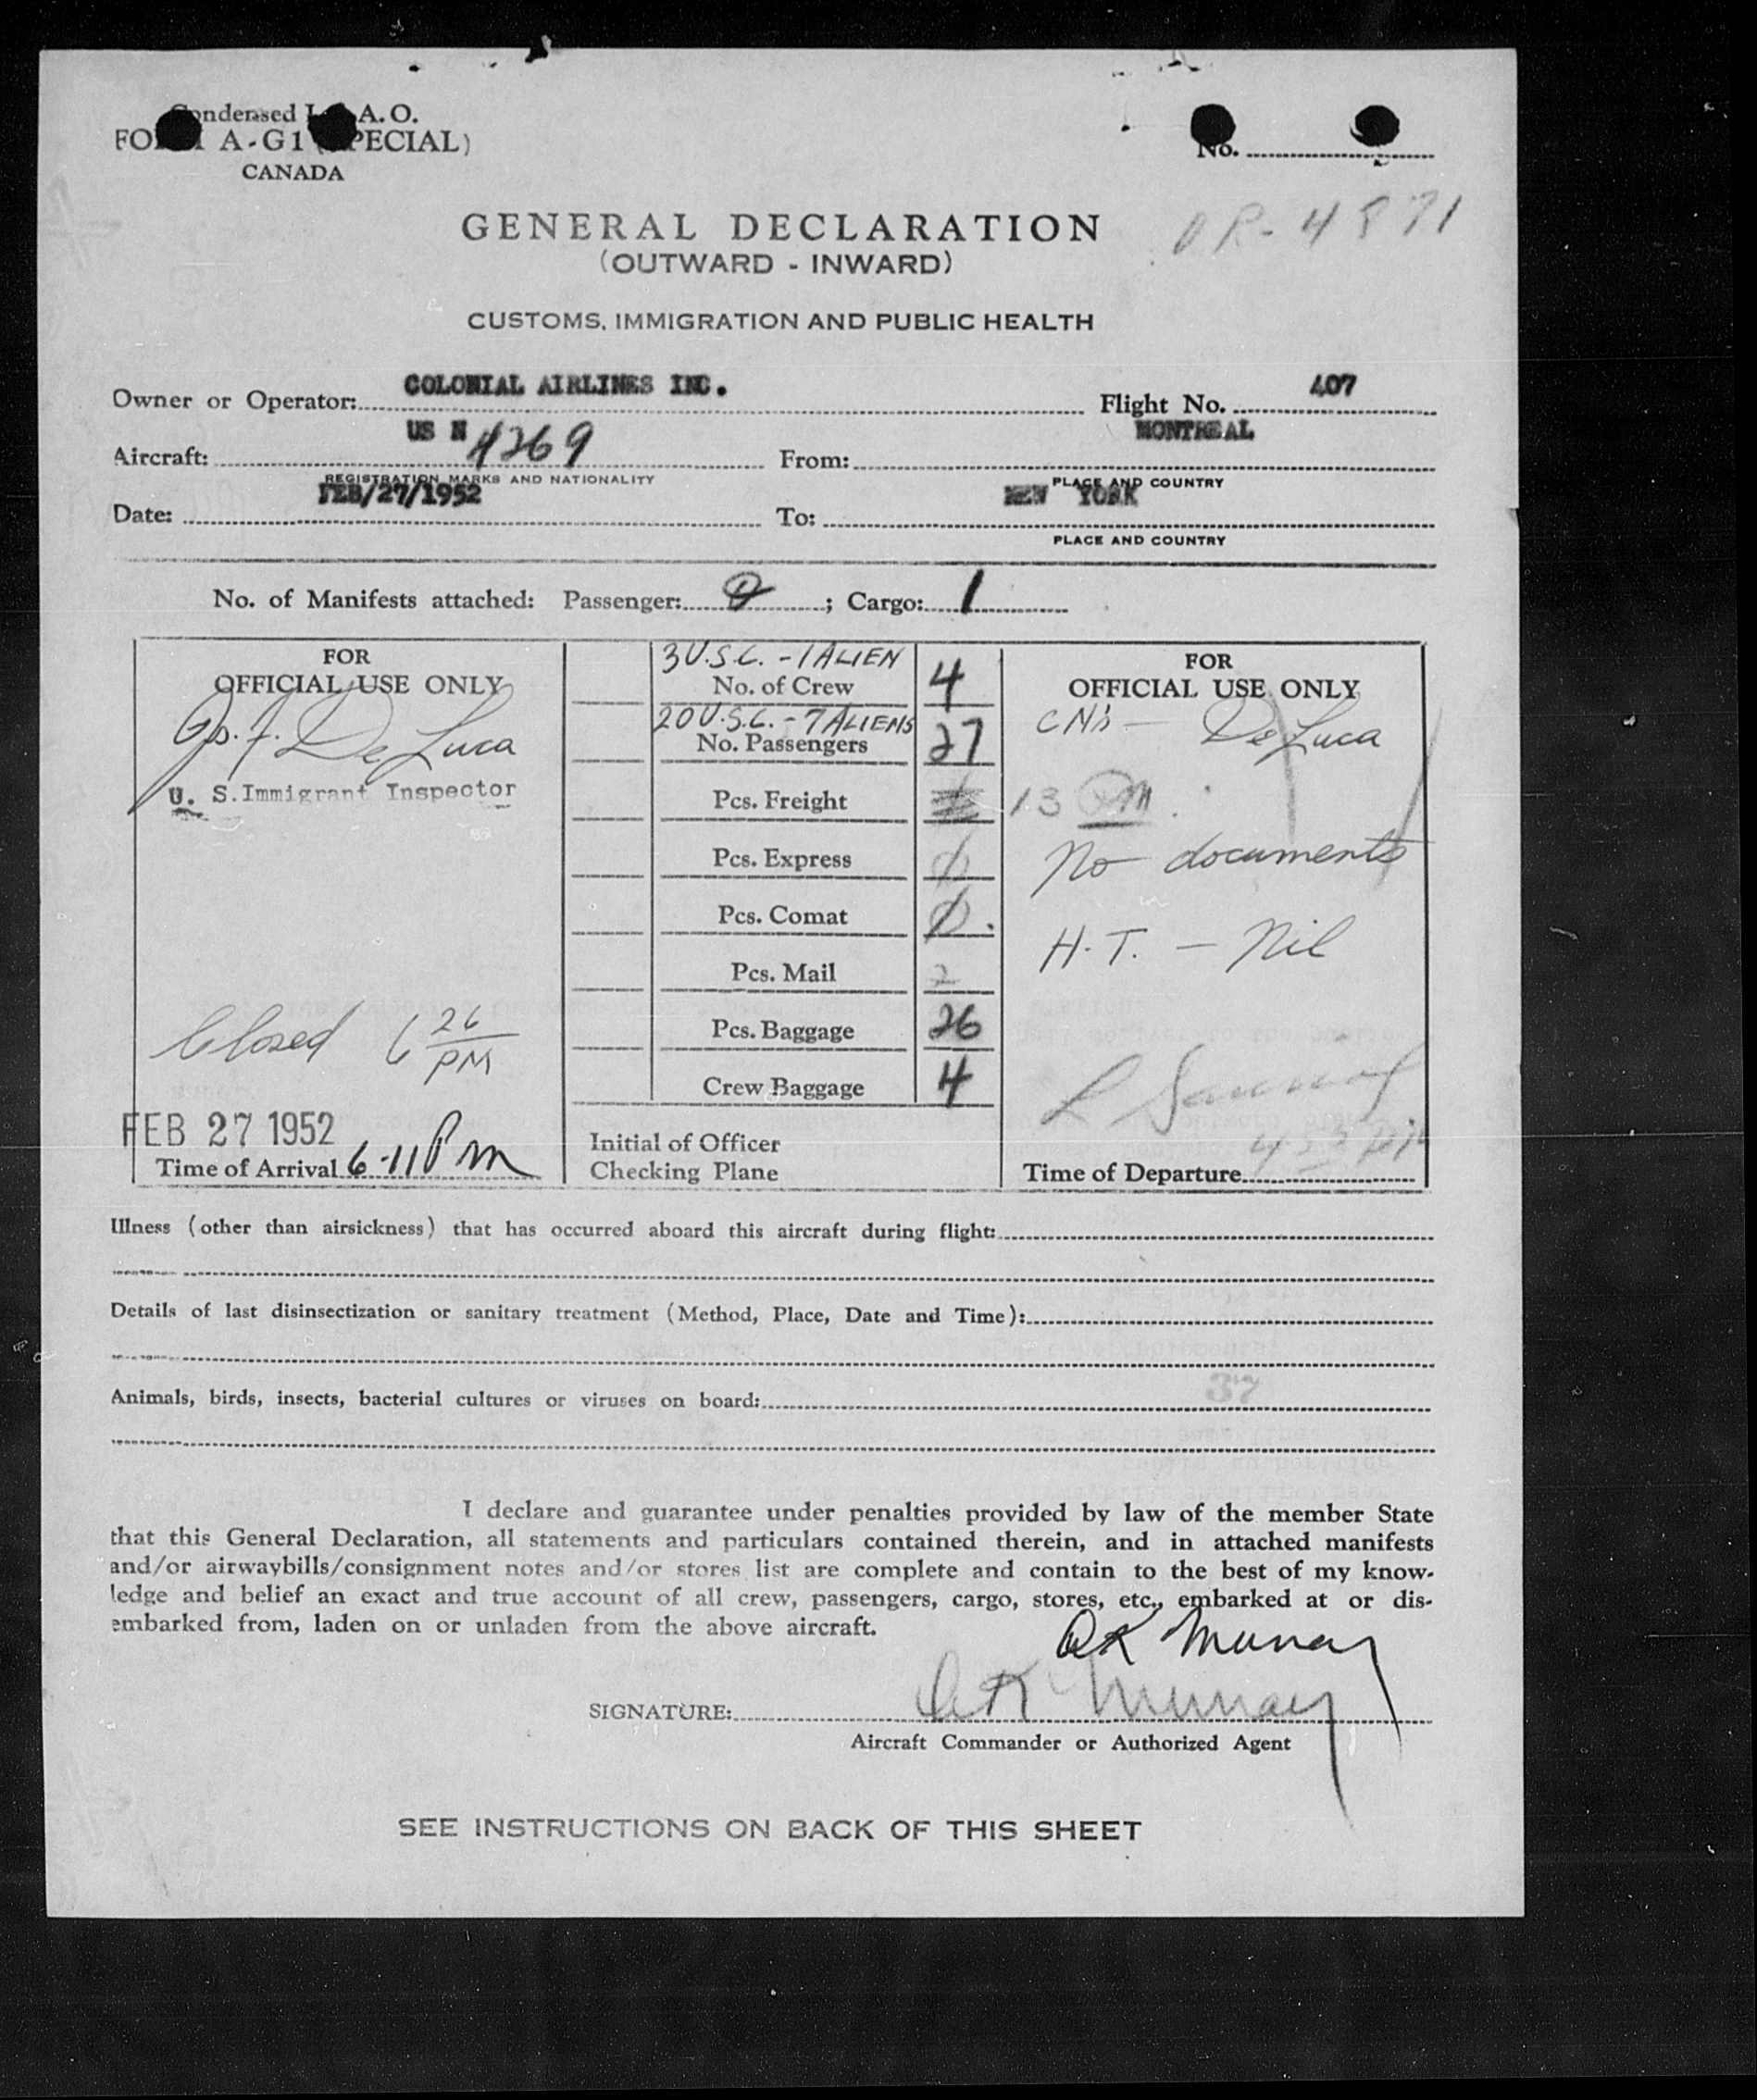 Condensed I. A. O.
FORM A-G1 (SPECIAL)
CANADA
No.
GENERAL DECLARATION
(OUTWARD - INWARD)
CUSTOMS, IMMIGRATION AND PUBLIC HEALTH
Owner or Operator: COLONIAL AIRLINES INC. Flight No. 407
Aircraft: US N 4269 From: MONTREAL
REGISTRATION MARKS AND NATIONALITY PLACE AND COUNTRY
Date: FEB/27/1952 To: NEW YORK
PLACE AND COUNTRY
No. of Manifests attached: Passenger: 0 ; Cargo: 1
FOR
OFFICIAL USE ONLY
Jos. F. De Luca
U. S. Immigrant Inspector
Closed 6 26 PM
FEB 27 1952
Time of Arrival 6-11 PM
3 U.S.C. - 1 ALIEN
No. of Crew 4
20 U.S.C. - 7 ALIENS
No. Passengers 27
Pcs. Freight
Pcs. Express 0
Pcs. Comat 0
Pcs. Mail 2
Pcs. Baggage 26
Crew Baggage 4
Initial of Officer
Checking Plane
FOR
OFFICIAL USE ONLY
De Luca
13
No documents
H.T. - Nil
Time of Departure
Illness (other than airsickness) that has occurred aboard this aircraft during flight:
Details of last disinsectization or sanitary treatment (Method, Place, Date and Time):
37
Animals, birds, insects, bacterial cultures or viruses on board:
I declare and guarantee under penalties provided by law of the member State
that this General Declaration, all statements and particulars contained therein, and in attached manifests
and/or airwaybills/consignment notes and/or stores list are complete and contain to the best of my know-
ledge and belief an exact and true account of all crew, passengers, cargo, stores, etc., embarked at or dis-
embarked from, laden on or unladen from the above aircraft.
OK Murray
SIGNATURE: OK Murray
Aircraft Commander or Authorized Agent
SEE INSTRUCTIONS ON BACK OF THIS SHEET